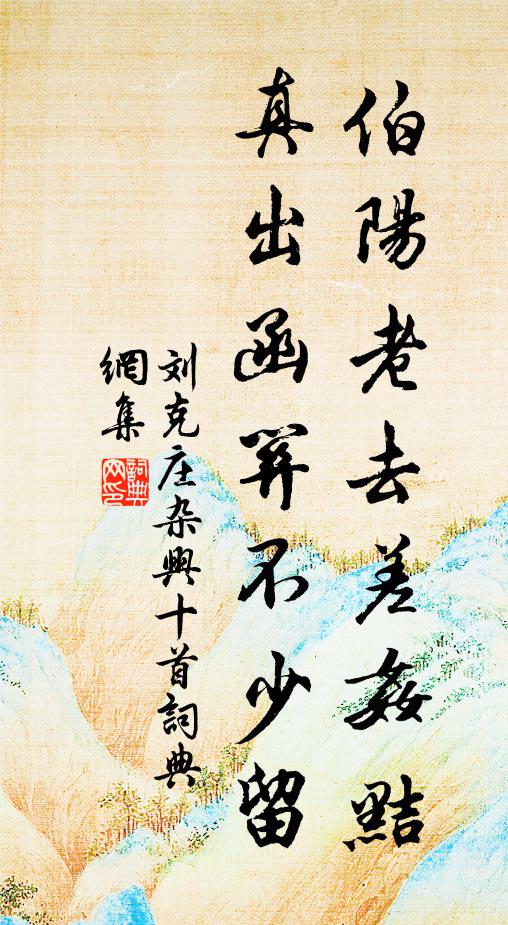 伯陽老去差姦黠
真出函関不少留
刘克庄杂興十首詞典
網集
詞典網印